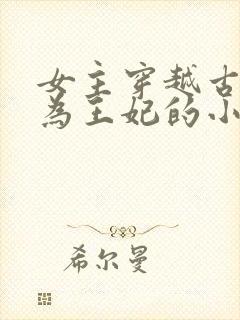 女主穿越古
为王妃的小
希尔曼